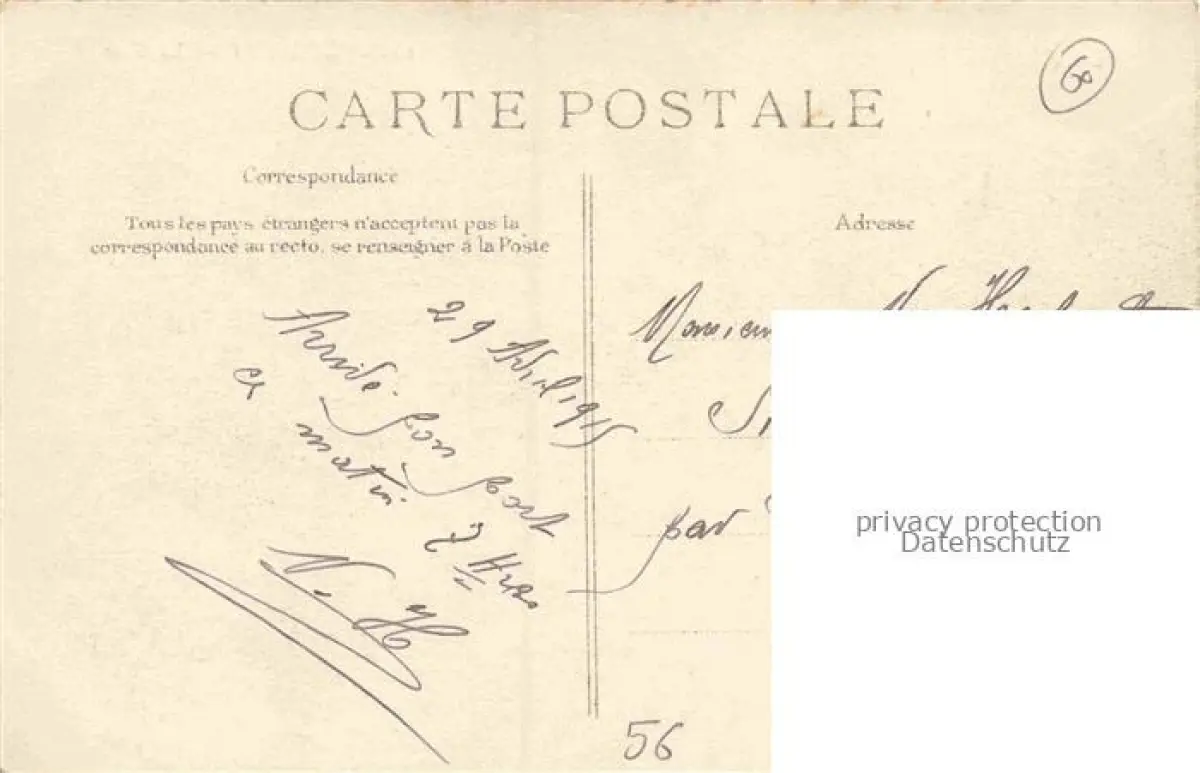 60
CARTE POSTALE
Correspondance
Tous les pays étrangers n'acceptent pas la
correspondance au recto, se renseigner à la Poste
Adresse
29 Avril 1915
Arrivé bon port
ce matin 7 Hres
N. H
Monsieur
par
56
privacy protection
Datenschutz